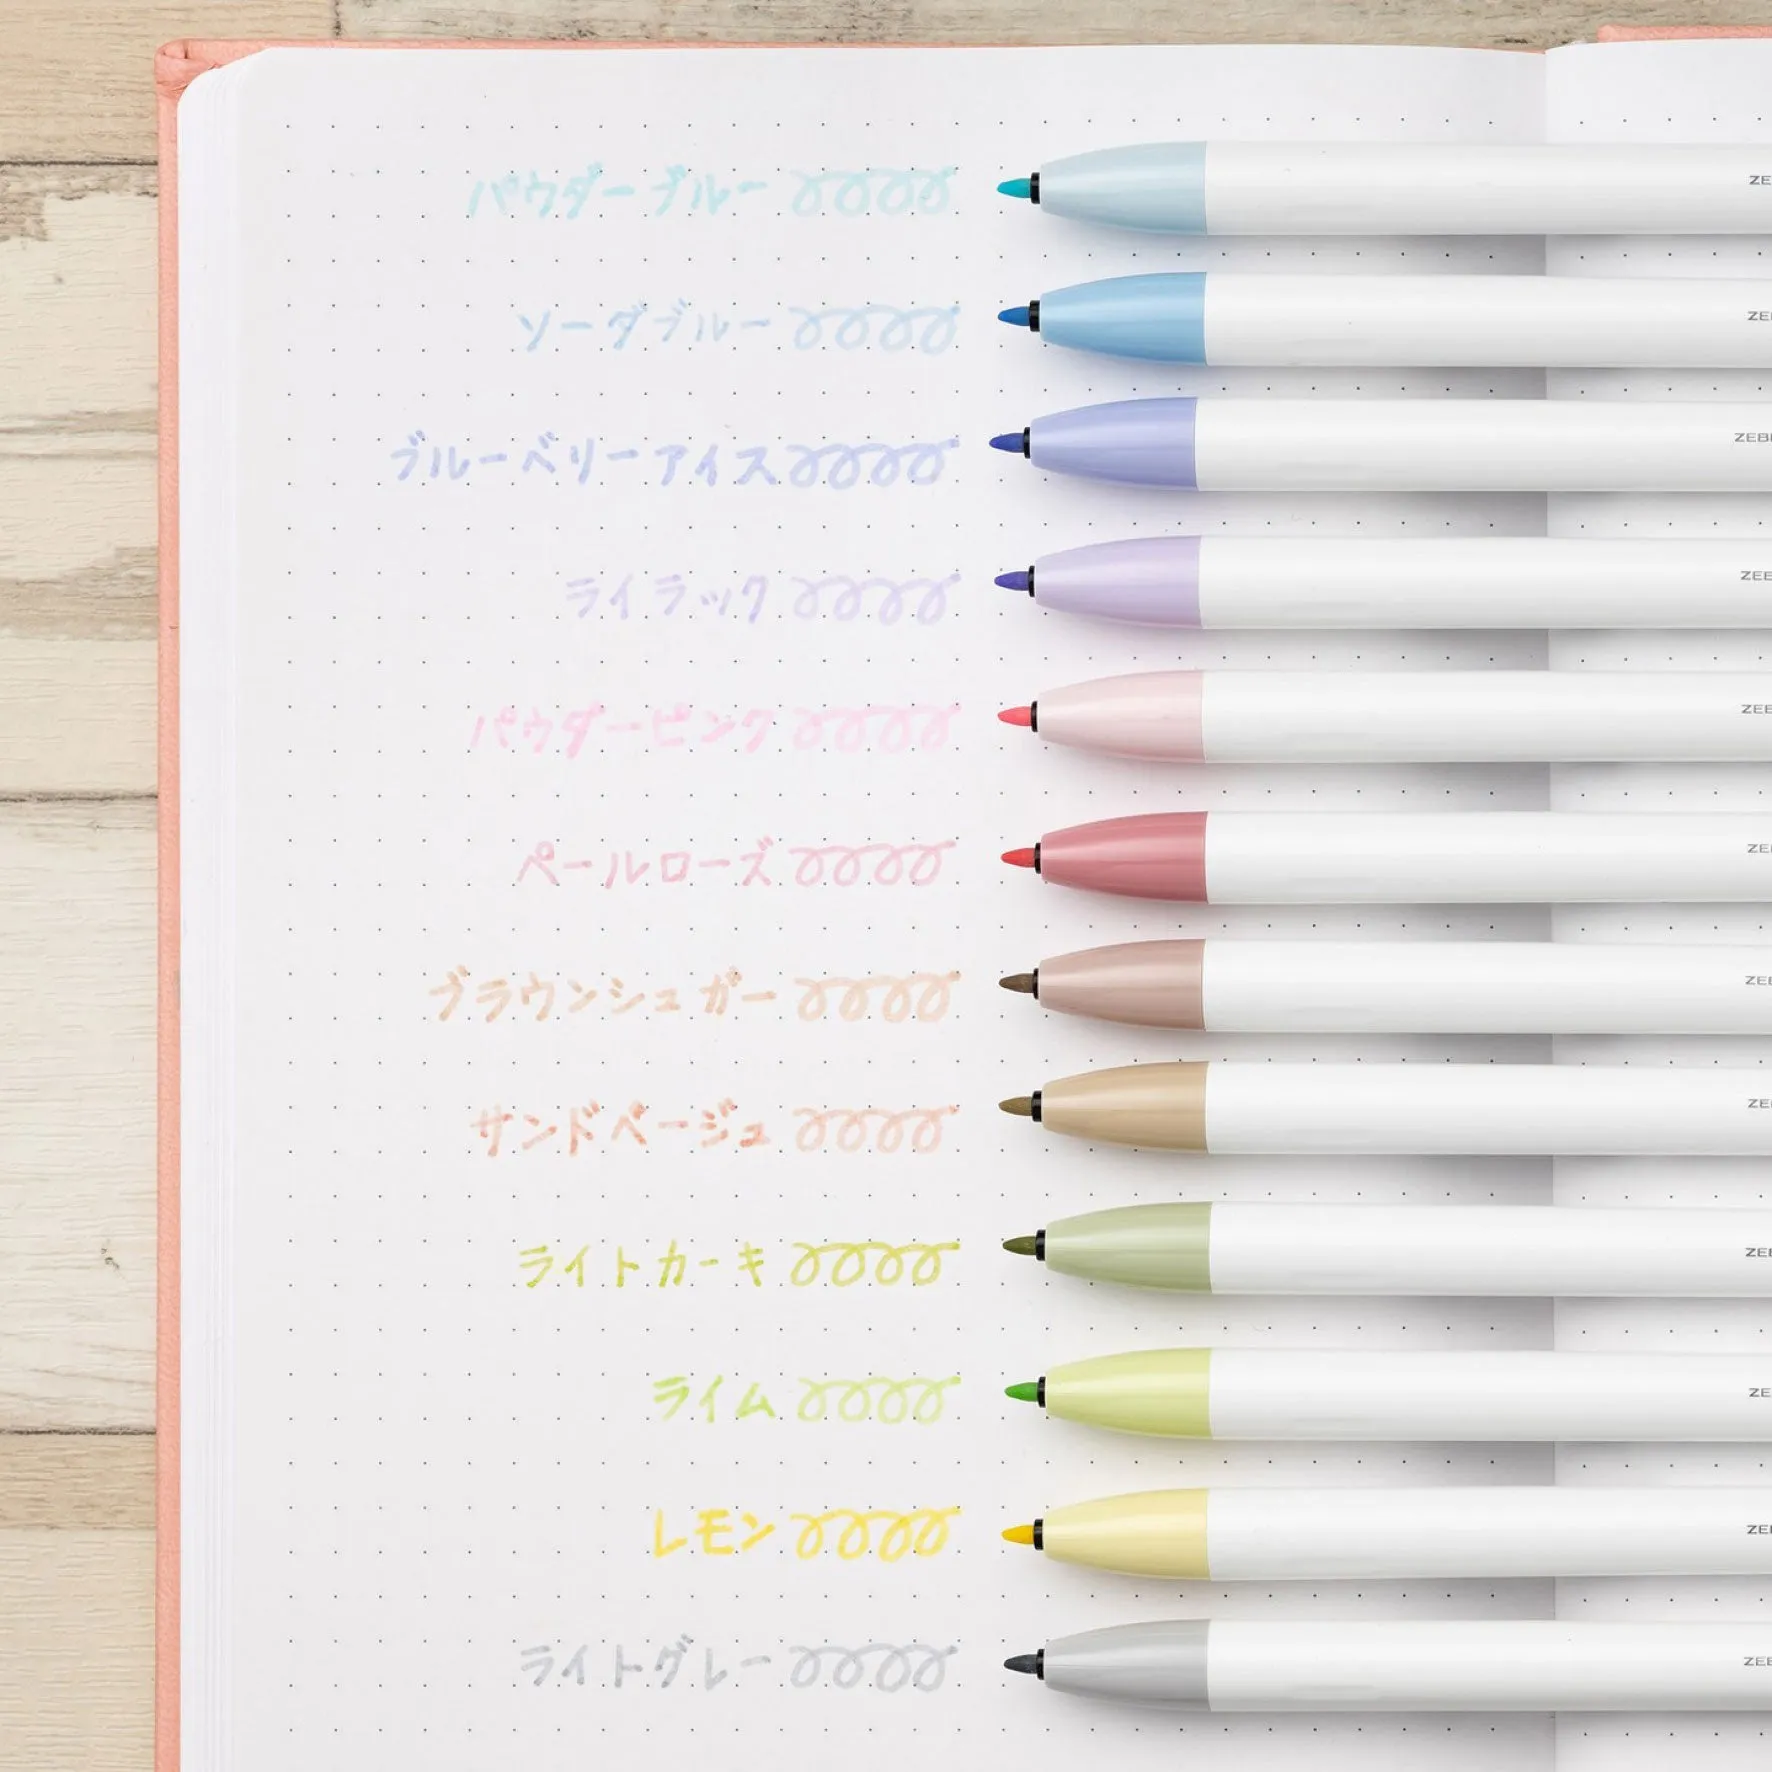 パウダーブルー ZE
ソーダブルー ZE
ブルーベリーアイス ZEB
ライラック ZEB
パウダーピンク ZEB
ペールローズ ZE
ブラウンシュガー ZE
サンドベージュ ZE
ライトカーキ ZE
ライム ZE
レモン ZE
ライトグレー ZE